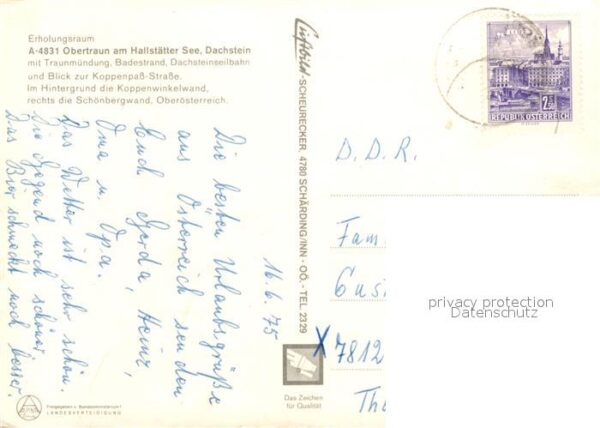 Erholungsraum
A-4831 Obertraun am Hallstätter See, Dachstein
mit Traunmündung, Badestrand, Dachsteinseilbahn
und Blick zur Koppenpaß-Straße.
Im Hintergrund die Koppenwinkelwand,
rechts die Schönbergwand, Oberösterreich.
16.6.75
Die besten Urlaubsgrüße
aus Österreich senden
Euch Gerda, Heinz,
Oma u. Opa.
Das Wetter ist sehr schön.
Die Gegend noch schöner
Das Bier schmeckt noch besser.
Luftbild-SCHEURECKER, 4780 SCHÄRDING/INN - OÖ. - TEL. 2329
REPUBLIK ÖSTERREICH
D. D. R.
Fam
Gusi
X 7812
Th
privacy protection
Datenschutz
Das Zeichen
für Qualität
Freigegeben v. Bundesministerium f.
LANDESVERTEIDIGUNG